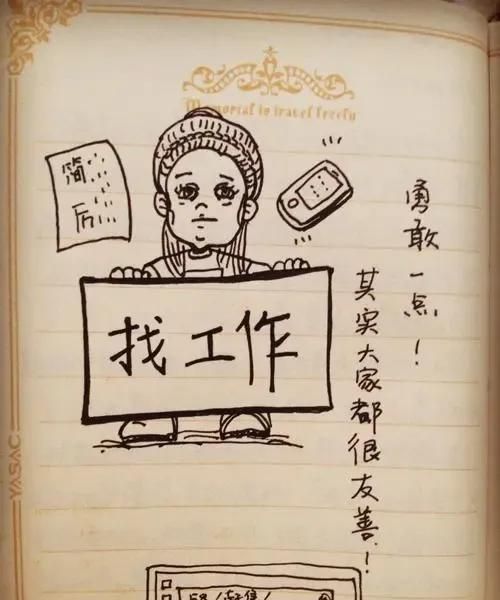 Memorial to travel freely
简
历
找工作
勇敢一点！
其实大家都很友善！
YASAC